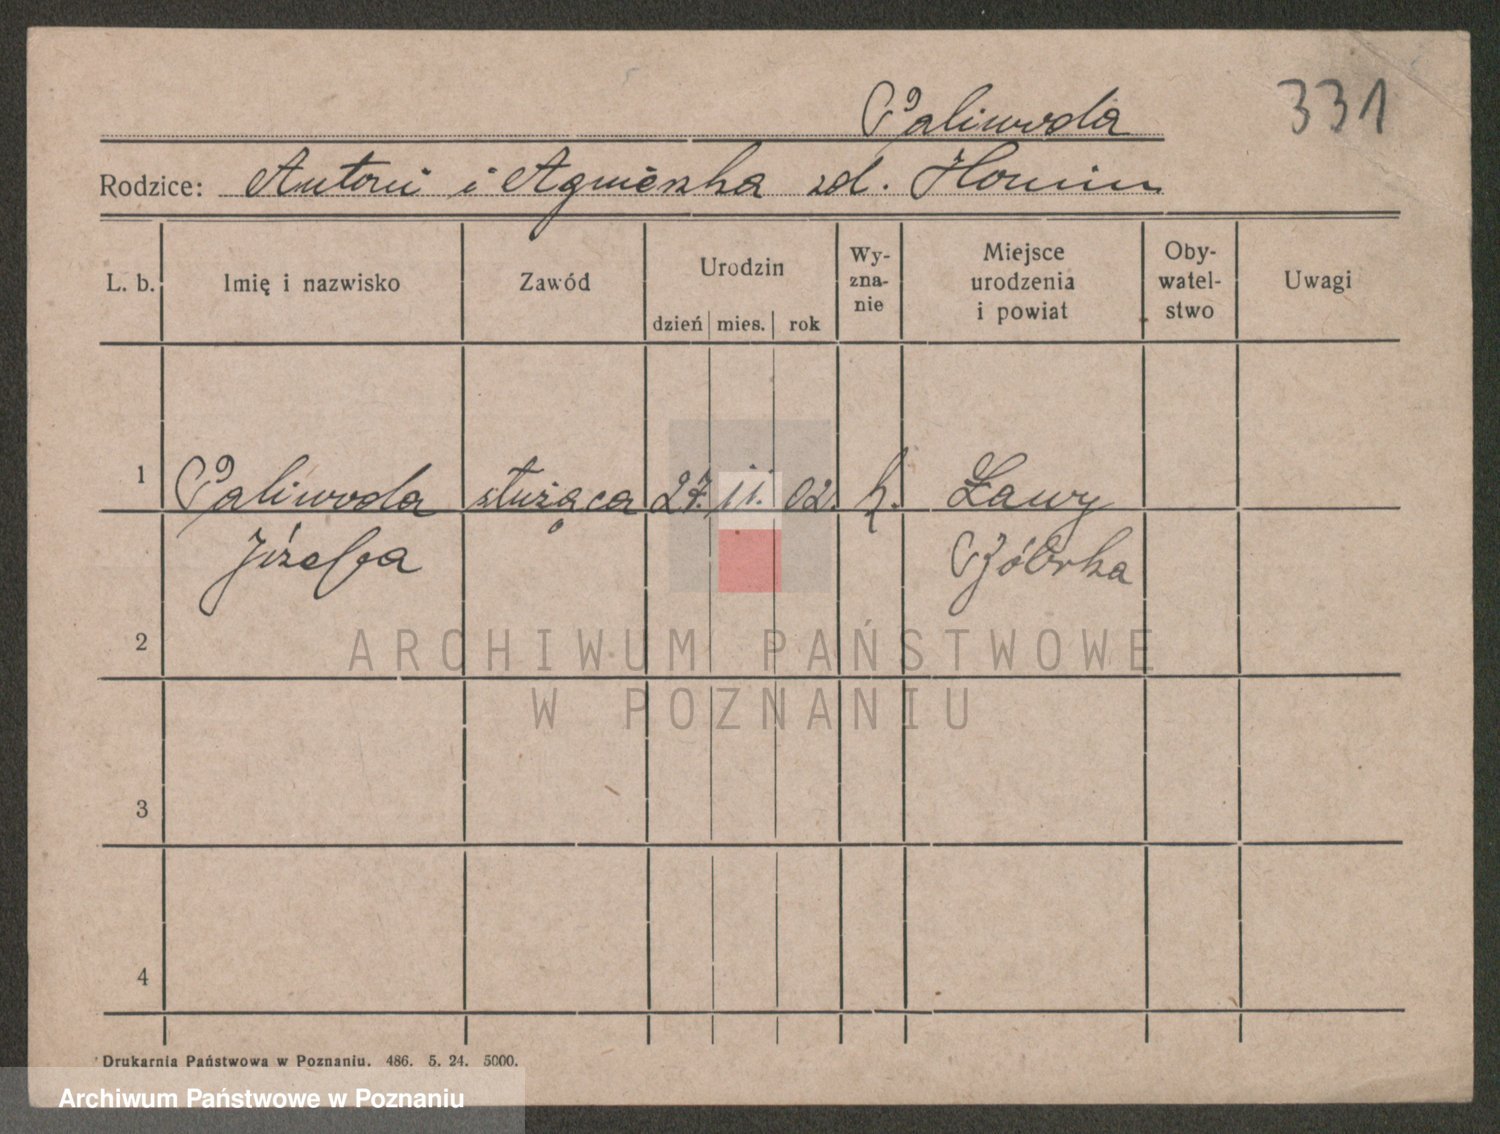 331
Paliwoda
Rodzice: Antoni i Agnieszka zd.
L. b. Imię i nazwisko Zawód Urodzin dzień mies. rok Wy-zna-nie Miejsce urodzenia i powiat Oby-watel-stwo Uwagi
1 Paliwoda służąca 27. 11. 02. k. Ławy
Józefa
2
3
4
Drukarnia Państwowa w Poznaniu. 486. 5. 24. 5000.
ARCHIWUM PAŃSTWOWE
W POZNANIU
Archiwum Państwowe w Poznaniu